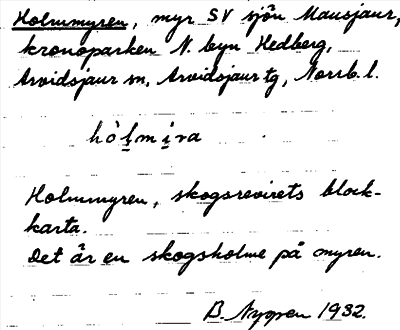 Holmmyren, myr SV sjön Mausjaur,
kronoparken N. byn Hedberg,
Arvidsjaur sn, Arvidsjaur tg, Norrb. l.
hòl̠mi̠ra
Holmmyren, skogsrevirets block-
karta.
Det är en skogsholme på myren.
B. Nygren 1932.